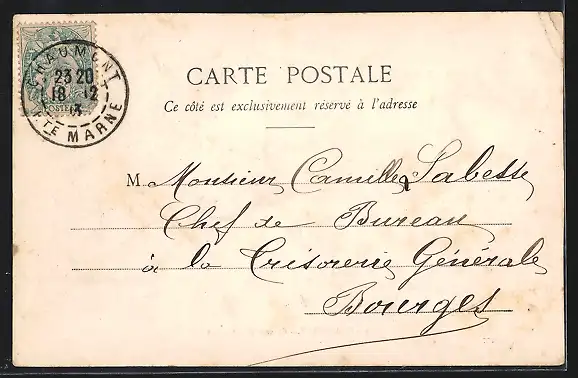 CHAUMONT
23 20
18 12
HTE MARNE
POSTES
CARTE POSTALE
Ce côté est exclusivement réservé à l'adresse
M. Monsieur Camille Labesse
Chef de Bureau
à la Trisorerie Générale
Bourges